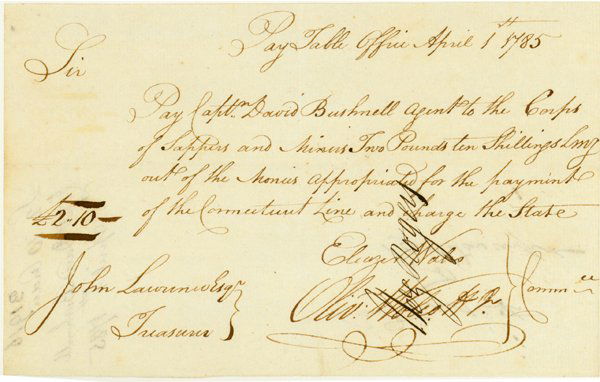 Pay Table Office April 1st 1785
Sir
Pay Captn David Bushnell Agent to the Corps
of Sappers and Miners Two Pounds ten Shillings Lmy
out of the Monies appropriated for the payment
of the Connecticut Line and charge the State
£2-10
Eleazr Wales
Olivr Wolcott Jr. } Commtee
John Lawrence Esqr
Treasurer